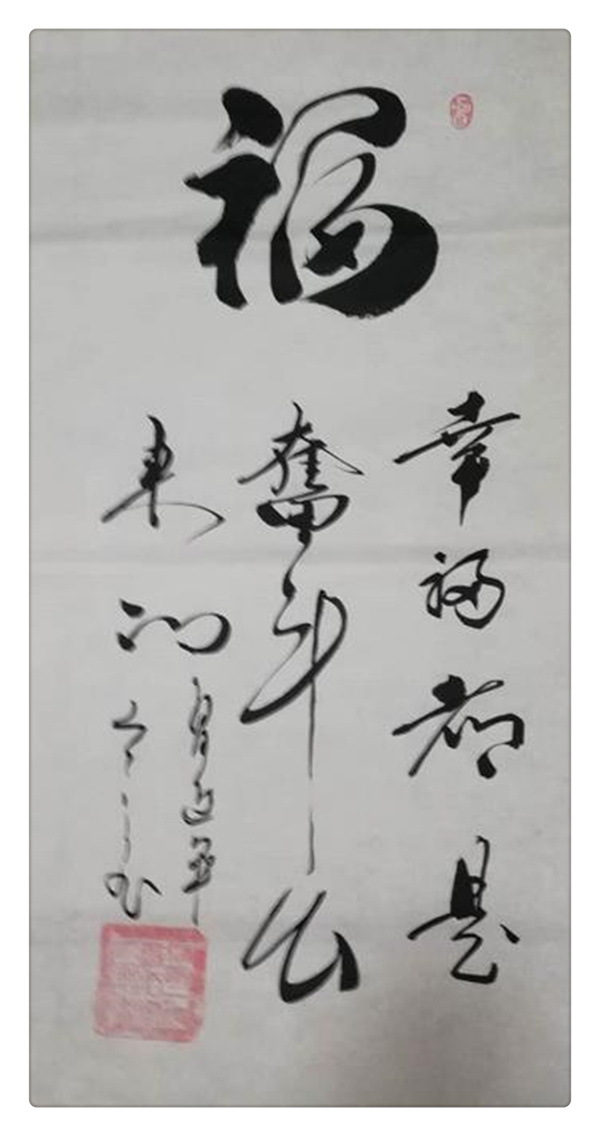 福
幸福都是
奋斗出
来的